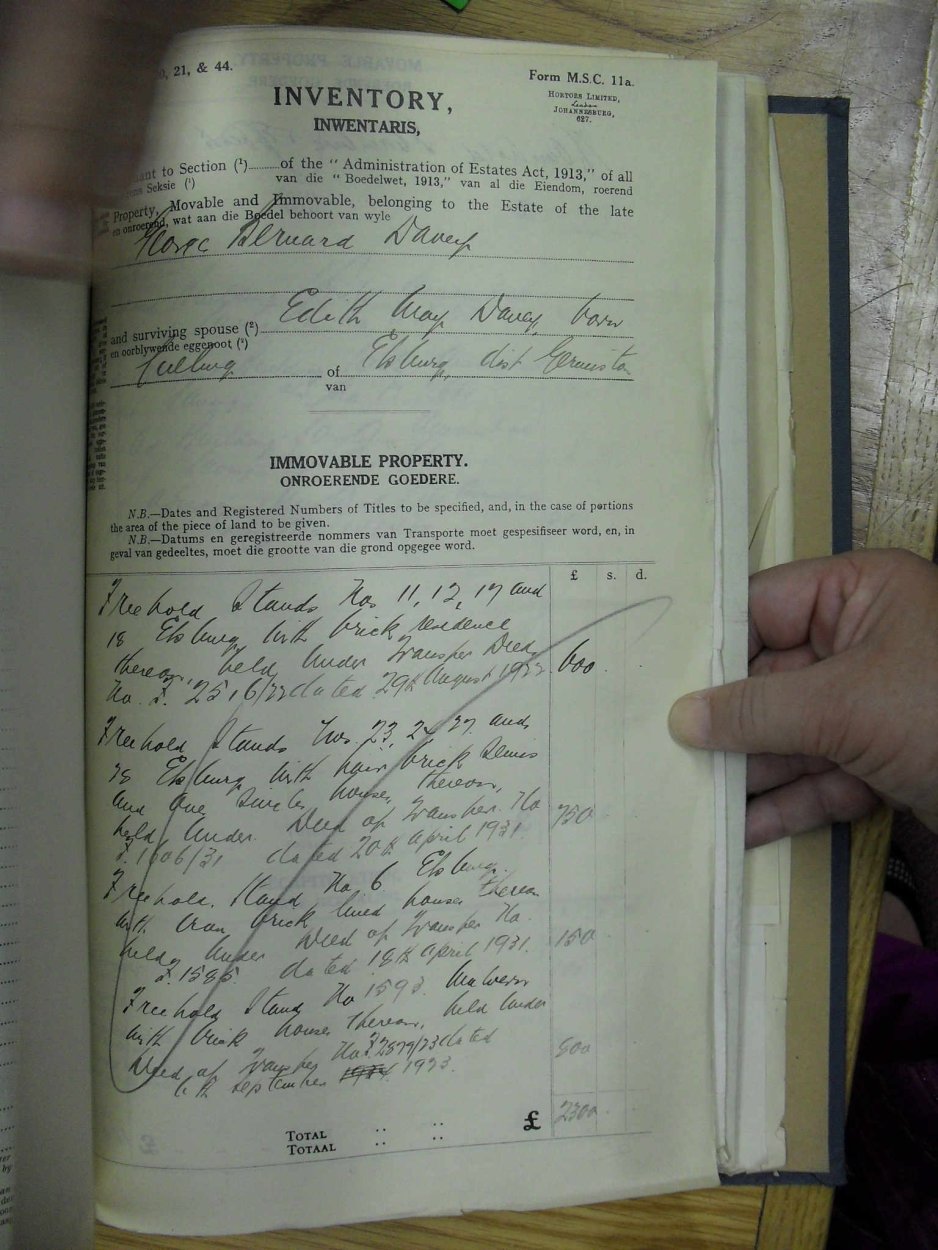 21, & 44.
Form M.S.C. 11a.
HORTORS LIMITED,
JOHANNESBURG,
627.
INVENTORY,
INWENTARIS,
to Section (¹) of the "Administration of Estates Act, 1913," of all
Seksie (¹) van die "Boedelwet, 1913," van al die Eiendom, roerend
Property, Movable and Immovable, belonging to the Estate of the late
en onroerend, wat aan die Boedel behoort van wyle
George Bernard Davey
Edith May Davey, born
and surviving spouse (²)
en oorblywende eggenoot (²)
of Elsburg, dist Germiston
van
IMMOVABLE PROPERTY.
ONROERENDE GOEDERE.
N.B.—Dates and Registered Numbers of Titles to be specified, and, in the case of portions
the area of the piece of land to be given.
N.B.—Datums en geregistreerde nommers van Transporte moet gespesifiseer word, en, in
geval van gedeeltes, moet die grootte van die grond opgegee word.
£ s. d.
Freehold Stands Nos 11, 12, 17 and
18 Elsburg with brick residence
thereon, held under Transfer Deed
No. F. 2516/22 dated 29th August 1922 600
Freehold Stands Nos. 23, 24, 27 and
28 Elsburg with pair brick Semis
and one Single house, thereon,
held under Deed of Transfer No 750
F. 1606/31 dated 20th April 1931
Freehold Stand No 6 Elsburg
with iron brick lined house thereon
held under Deed of Transfer No. 150
F. 1585 dated 18th April 1931.
Freehold Stand No 1593 Malvern
with brick house thereon, held under
Deed of Transfer No F 2879/23 dated 800
6th September 1923.
TOTAL £ 2300
TOTAAL